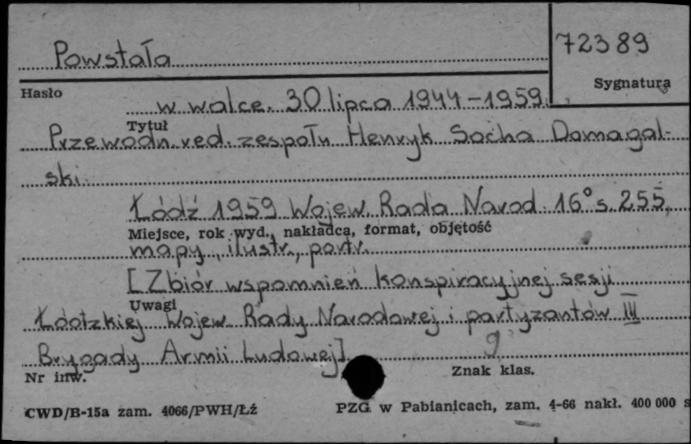 Powstała
72389
Hasło
Sygnatura
w walce. 30 lipca 1944-1959.
Tytuł
Przewodn. red. zespołu Henryk Socha Domagal-
ski.
Łódź 1959 Wojew. Rada Narod. 16° s. 255,
Miejsce, rok wyd., nakładca, format, objętość
mapy, ilustr., portr.
[Zbiór wspomnień konspiracyjnej sesji
Uwagi
Łódzkiej Wojew. Rady Narodowej i partyzantów III
Brygady Armii Ludowej].
9
Nr inw.
Znak klas.
CWD/B-15a zam. 4066/PWH/Łż
PZG w Pabianicach, zam. 4-66 nakł. 400 000 s